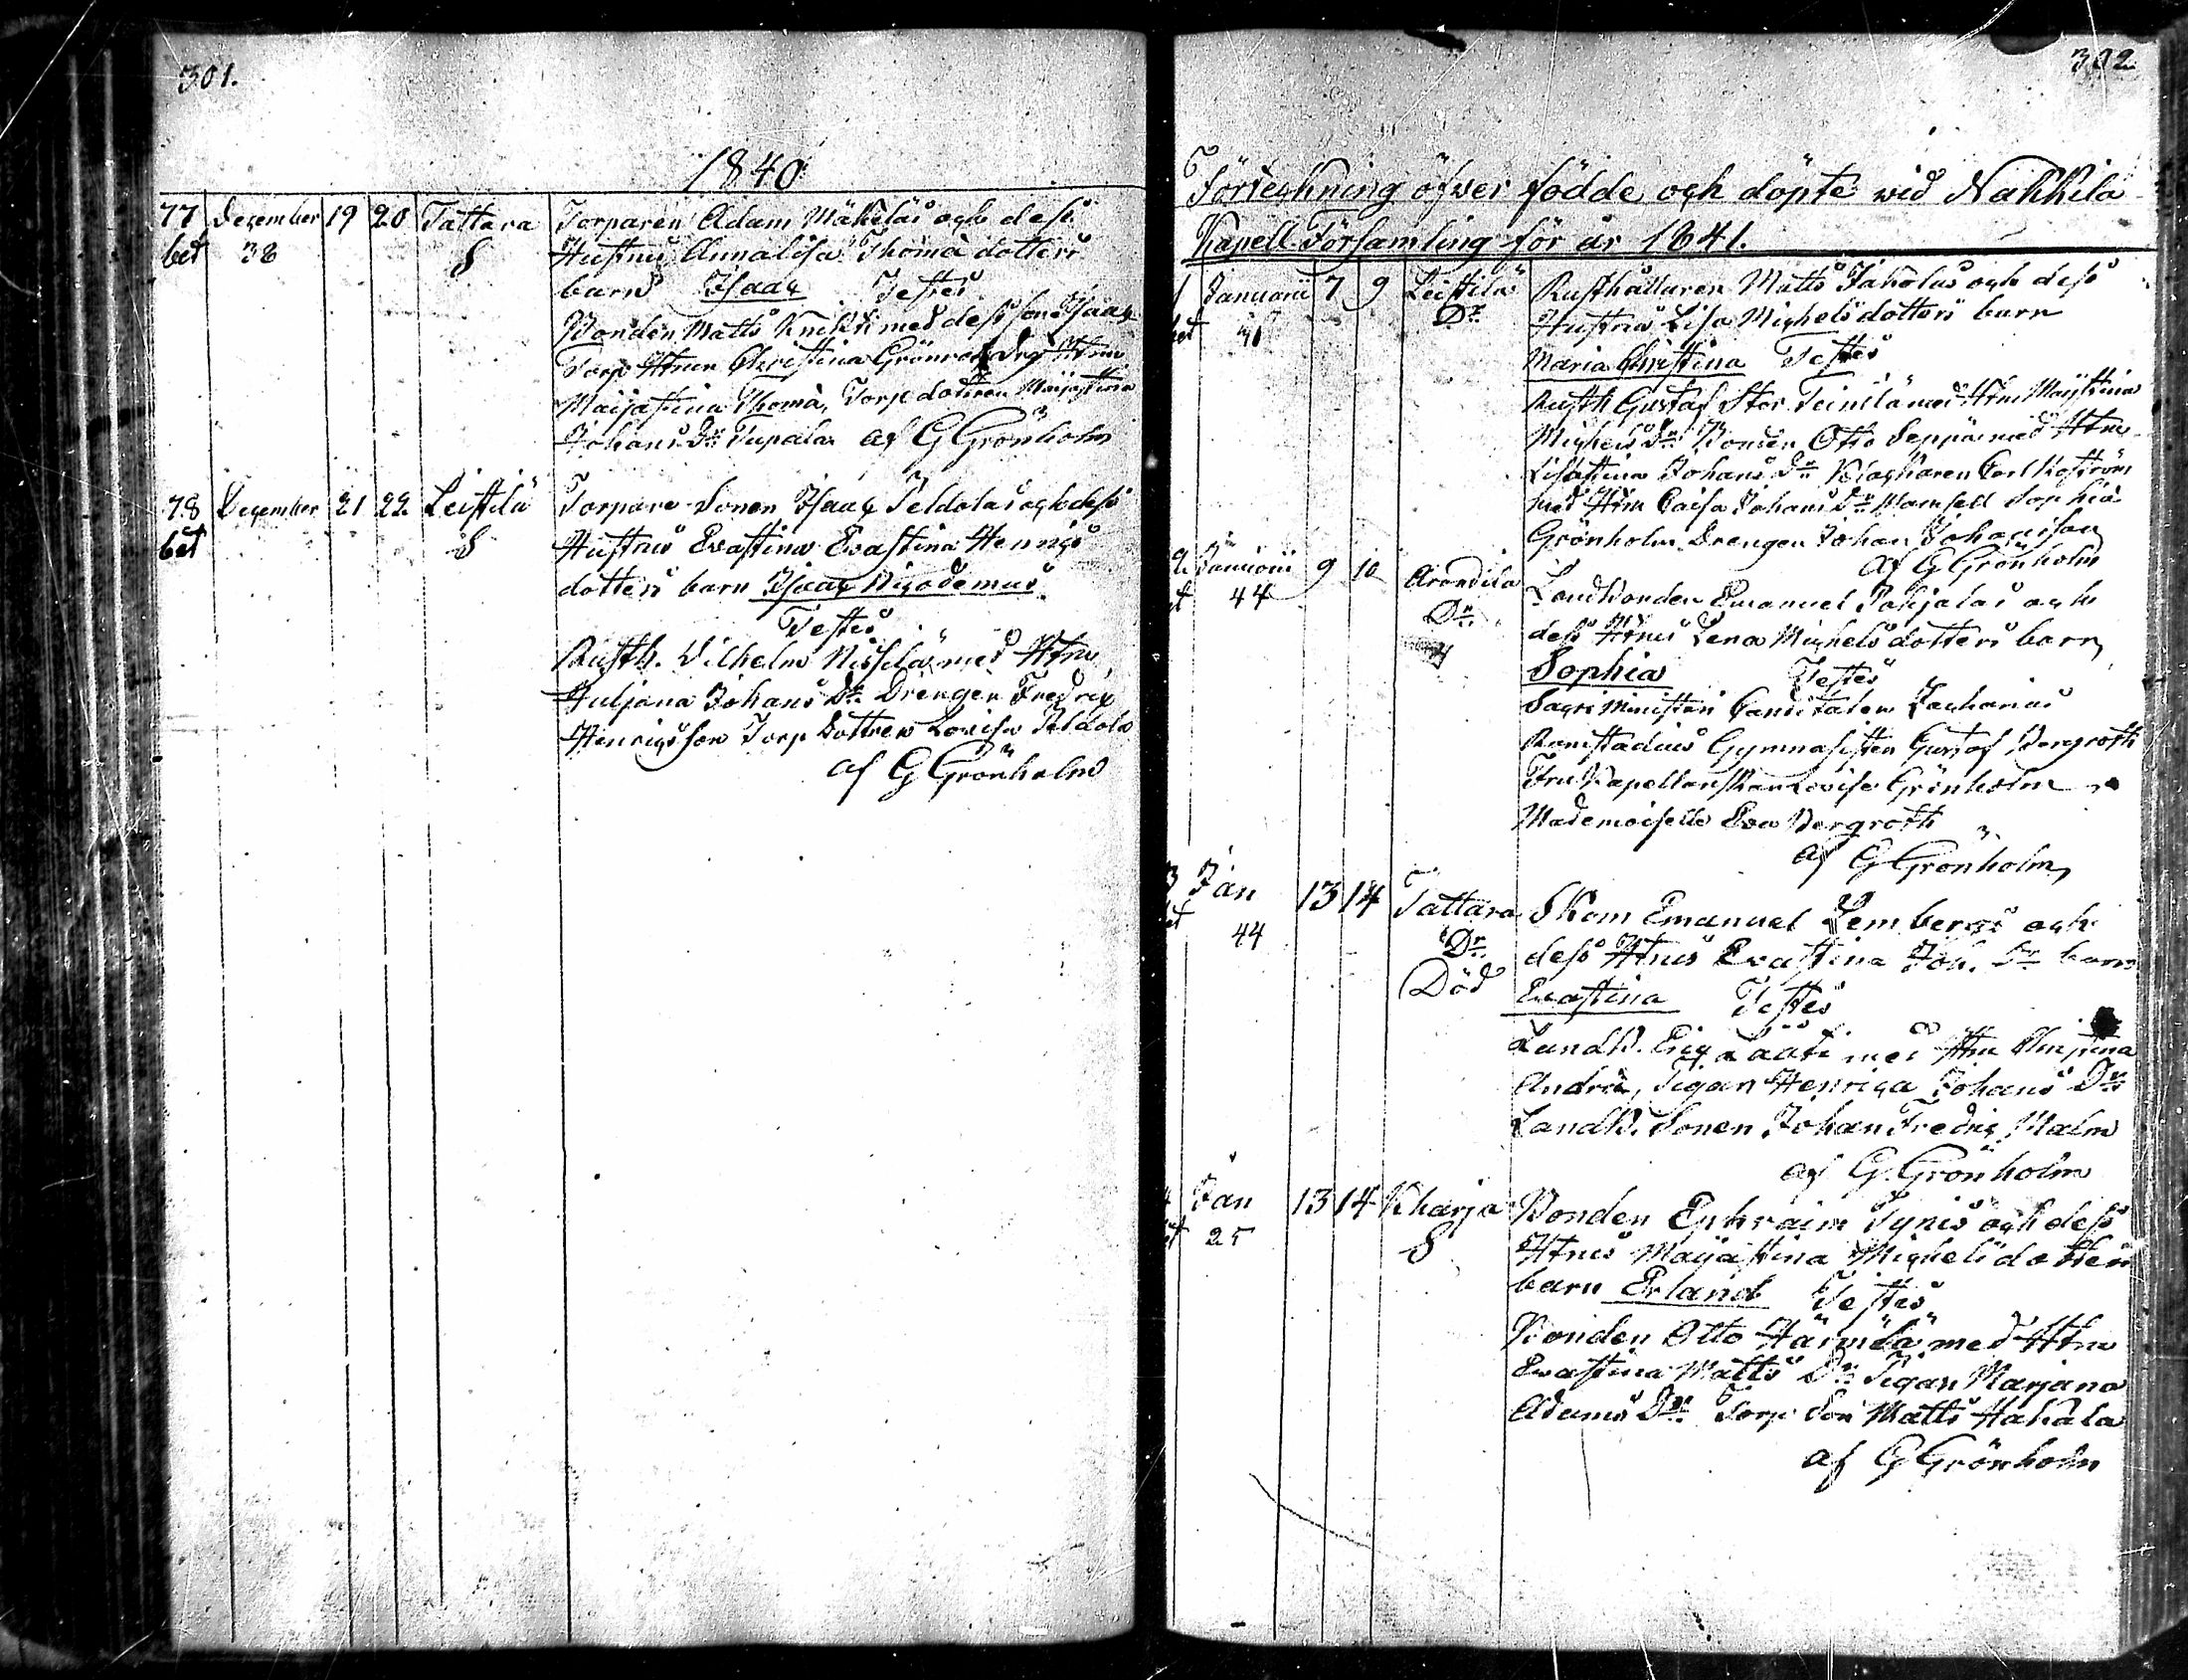 301.
1840
77 December 19 20 Tattara Torparen Adam Mäkeläs och dess
bet 38 S Hustrus Annalisa Thomä dotters
barn Isaac Testes
Bonden Matts Knihti med dess son Isaac
Torp Hrun Christina Grönroos Drg Hrun
Maijastina Thomä, Torp dottren Maijastina
Johans Dr Tupala af G Grönholm
78 December 21 22 Leistilä Torpare Sonen Isaac Peldolas och dess
bet S Hustrus Evastina Evastina Henrics
dotters barn Isaac Nicodemus
Testes
Rusth. Vilhelm Nissilä med Hru
Juljana Johans Dr Drengen Fredric
Henricsson Torp Dottren Lovisa Peldola
af G Grönholm
302
Förteckning öfver födde och döpte wid Nakkila
Kapell-Församling för år 1841.
1 Januarii 7 9 Leistilä Rusthållaren Matts Jaholas och dess
bet Dr Hustrus Lisa Michelsdotters barn
Maria Christina Testes
Rusth Gustaf Stor Teinilä med Hru Maijstina
Michels Dr Bonden Otto Seppä med Hru
Lisastina Johans Dr Klockaren Carl Hoffröm
med Hru Caisa Johans Dr Mamsell Sophia
Grönholm Drengen Johan Johansson
af G Grönholm
2 Januarii 9 10 Arandila Landbonden Emanuel Pahjalas och
bet 44 Dr dess Hrus Lena Michelsdotters barn
Sophia Testes
Sacri Ministerii Canditaten Zacharias
Ramstadius Gymnasisten Gustaf Bergroth
Fru Kapellanskan Lovisa Grönholm
Mademoiselle Eva Bergroth
af G Grönholm
3 Jan 13 14 Tattara Skom Emanuel Lembergs och
bet 44 Dr dess Hrus Evastina Joh. Dr barn
Död Evastina Testes
Landb. Eric Lääti med Hru
Andrä, Pigan Henrica Johans Dr
Landb. Sonen Johan Fredric Malm
af G. Grönholm
4 Jan 13 14 Kharja Bonden Ephraim Tynis och dess
bet 25 S Hrus Maijastina Michelsdotters
barn Erland Testes
Bonden Otto Härmälä med Hru
Evastina Matts Dr Pigan Marjana
Adams Dr Torp Son Matts Hakala
af G Grönholm